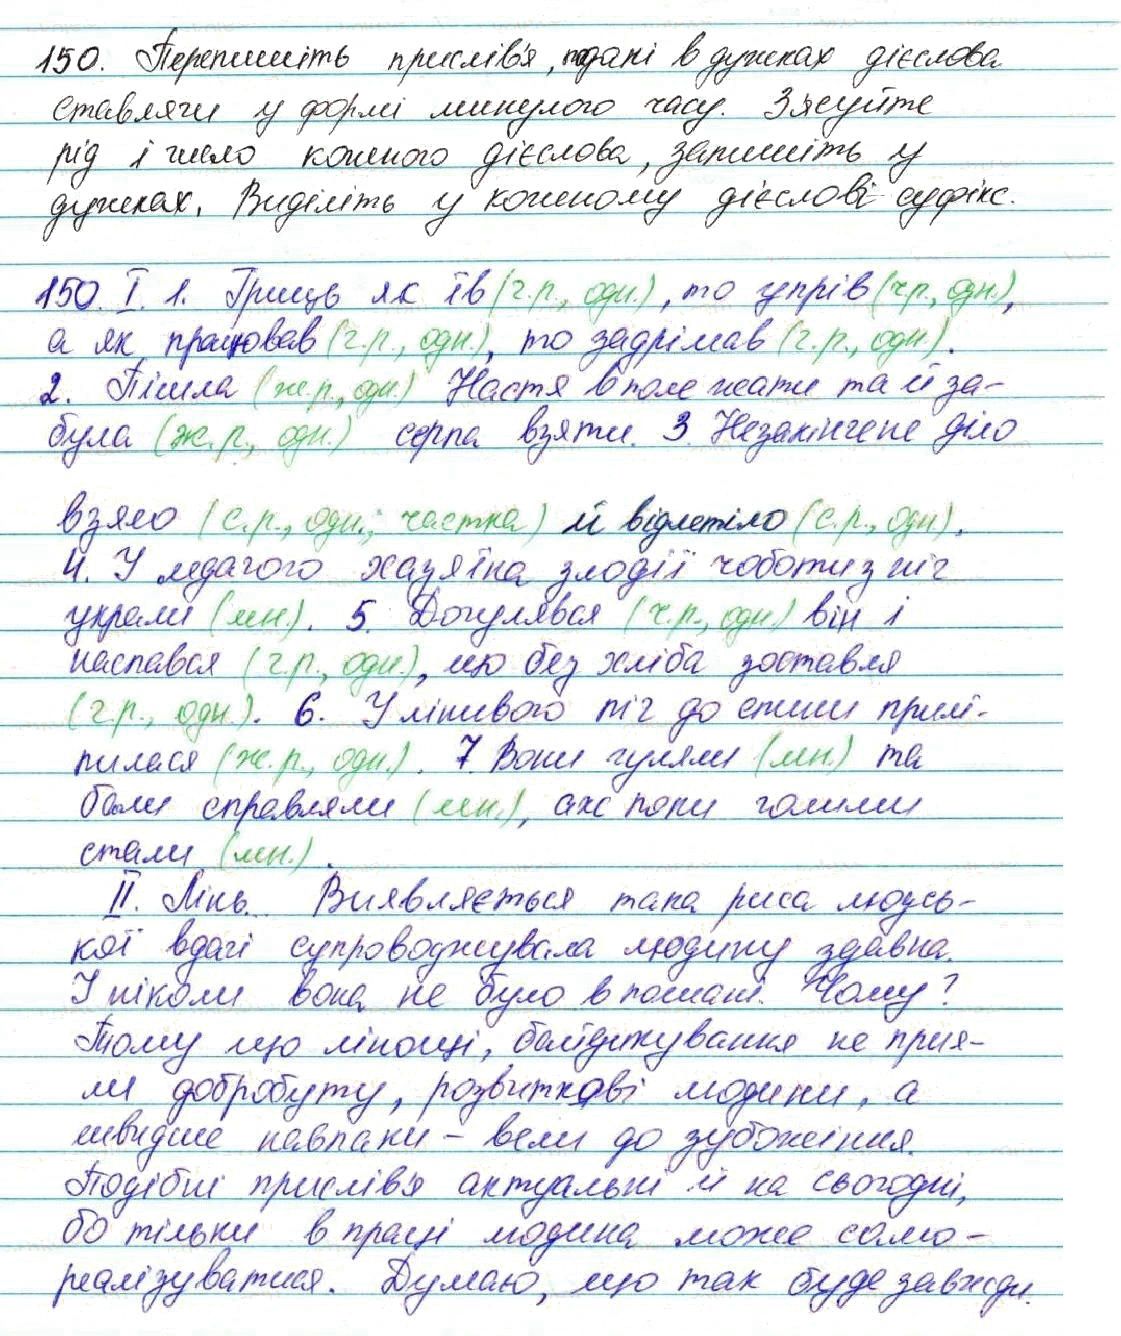 150. Перепишіть прислів'я, подані в дужках дієслова
ставлячи у формі минулого часу. З'ясуйте
рід і число кожного дієслова, запишіть у
дужках. Виділіть у кожному дієслові суфікс.
150. I. 1. Гриць як їв (ч.р., одн.), то упрів (ч.р., одн.),
а як працював (ч.р., одн.), то задрімав (ч.р., одн.).
2. Пішла (ж.р., одн.) Настя в поле жати та й за-
була (ж.р., одн.) серпа взяти. 3. Незакінчене діло
взяло (с.р., одн., частка) й відлетіло (с.р., одн).
4. У ледачого хазяїна злодії чоботи з ніг
украли (мн.). 5. Догулявся (ч.р., одн.) він і
наспався (ч.р., одн.), що без хліба зоставя
(ч.р., одн.). 6. У лінивого піч до спини прилі-
пилася (ж.р., одн.). 7. Вони гуляли (мн.) та
бали справляли (мн.), аж поки голими
стали (мн.).
II. Лінь. Виявляється така риса людсь-
кої вдачі супроводжувала людину здавна.
І ніколи вона не було в пошані. Чому?
Тому що лінощі, байдикування не прия-
ли добробуту, розвиткові людини, а
швидше навпаки - вели до зубожіння.
Подібні прислів'я актуальні й на сьогодні,
бо тільки в праці людина може само-
реалізуватися. Думаю, що так буде завжди.